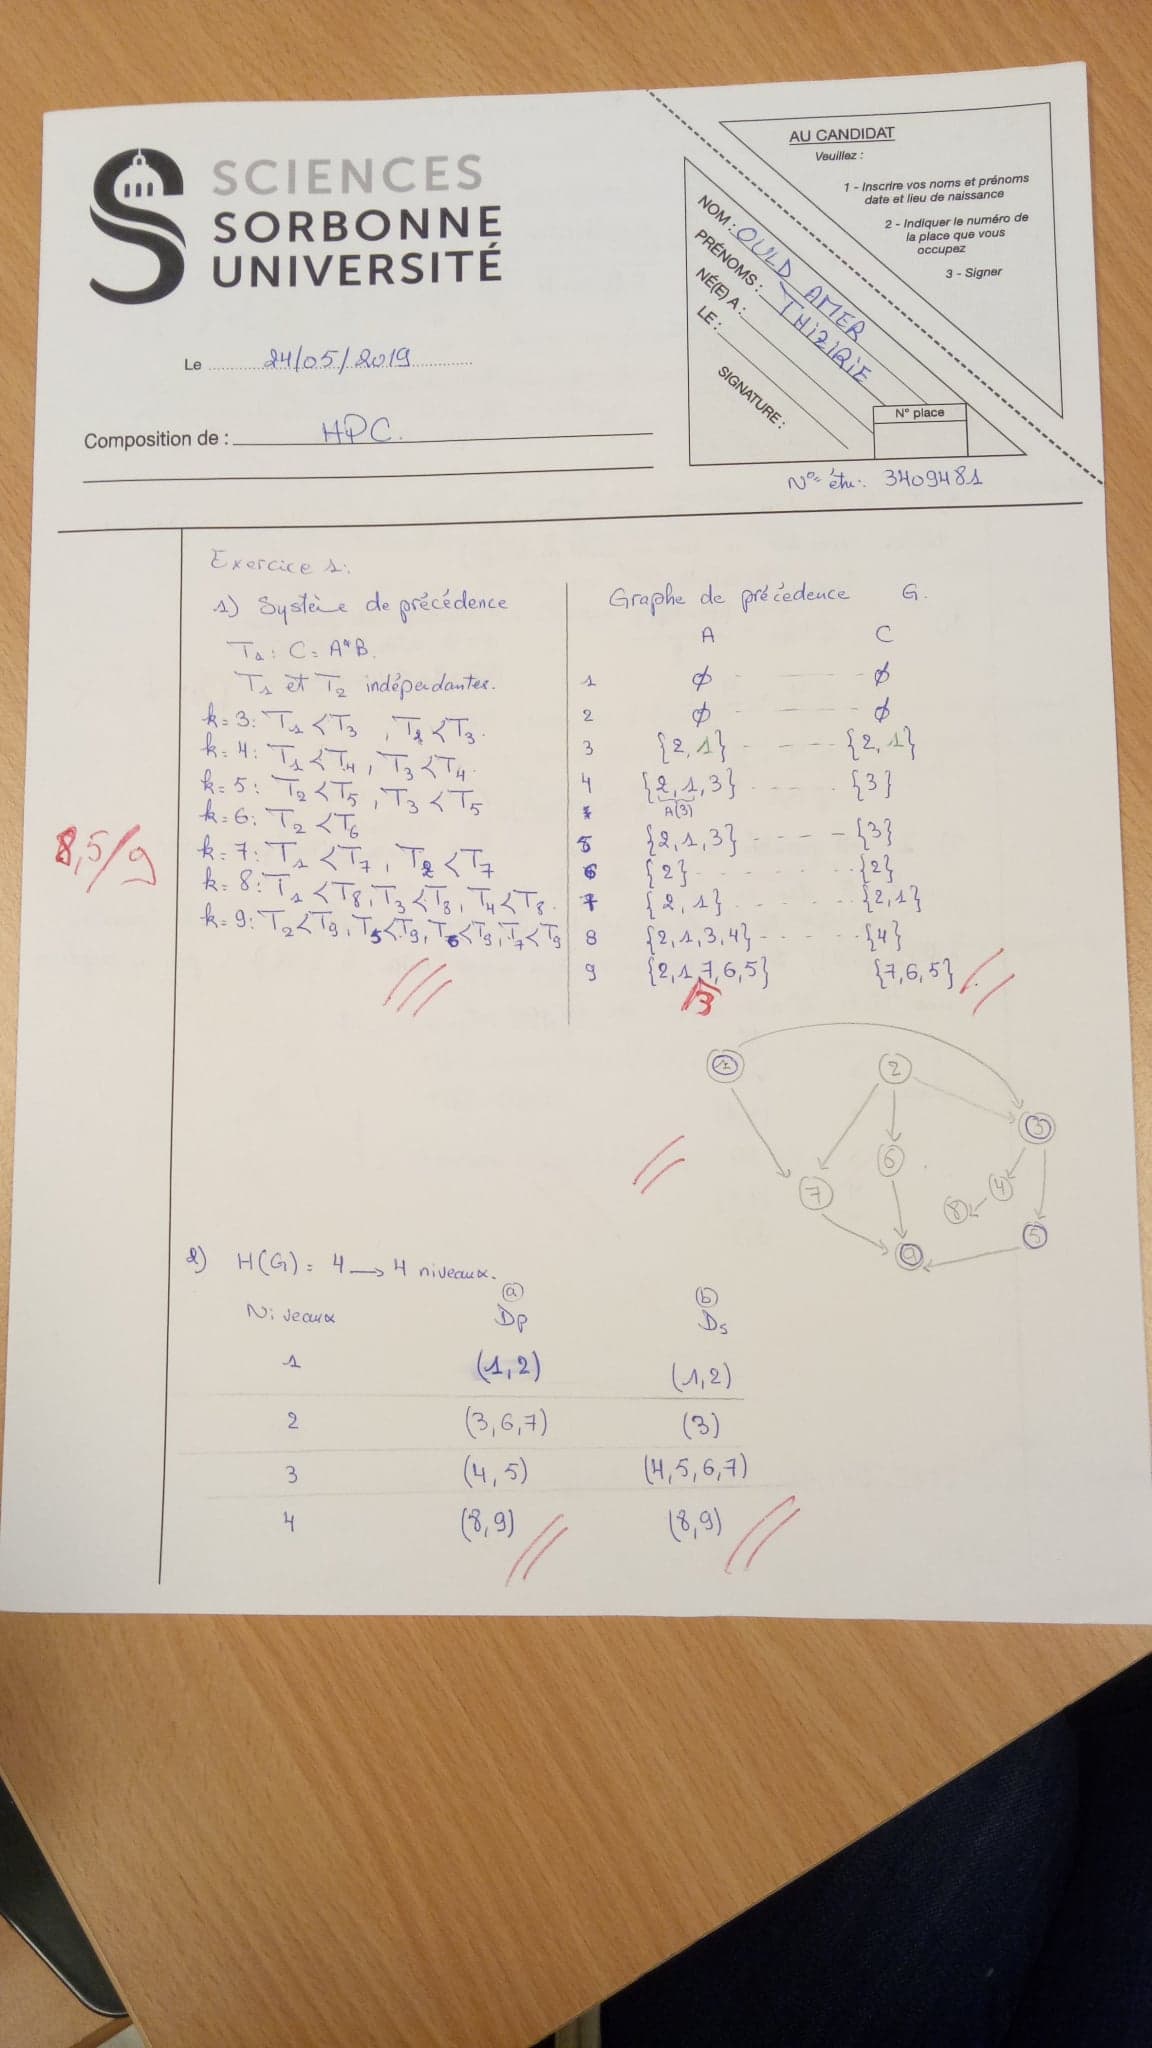 SCIENCES
SORBONNE
UNIVERSITÉ
AU CANDIDAT
Veuillez :
1 - Inscrire vos noms et prénoms
date et lieu de naissance
2 - Indiquer le numéro de
la place que vous
occupez
3 - Signer
NOM : OULD AMER
PRÉNOMS : THIZIRIE
NÉ(E) A :
LE :
SIGNATURE :
N° place
Le 24/05/2019
Composition de : HPC.
N° étu: 3409481
Exercice 1:
1) Système de précédence
T1 : C = A*B.
T1 et T2 indépendantes.
k = 3: T1 < T3 , T2 < T3.
k = 4: T1 < T4 , T3 < T4.
k = 5: T2 < T5 , T3 < T5
k = 6: T2 < T6
k = 7: T1 < T7 , T2 < T7
k = 8: T1 < T8, T3 < T8, T4 < T8.
k = 9: T2 < T9, T5 < T9, T6 < T9, T7 < T9
8,5/9
Graphe de précedence G.
A C
1 ∅ ∅
2 ∅ ∅
3 {2, 1} {2, 1}
4 {2, 1, 3} {3}
A(3)
5 {2, 1, 3} {3}
6 {2} {2}
7 {2, 1} {2, 1}
8 {2, 1, 3, 4} {4}
9 {2, 1, 7, 6, 5} {7, 6, 5}
3
1
2
3
6
7
4
8
5
9
2) H(G) = 4 → 4 niveaux.
a b
Niveaux Dp Ds
1 (1, 2) (1, 2)
2 (3, 6, 7) (3)
3 (4, 5) (4, 5, 6, 7)
4 (8, 9) (8, 9)